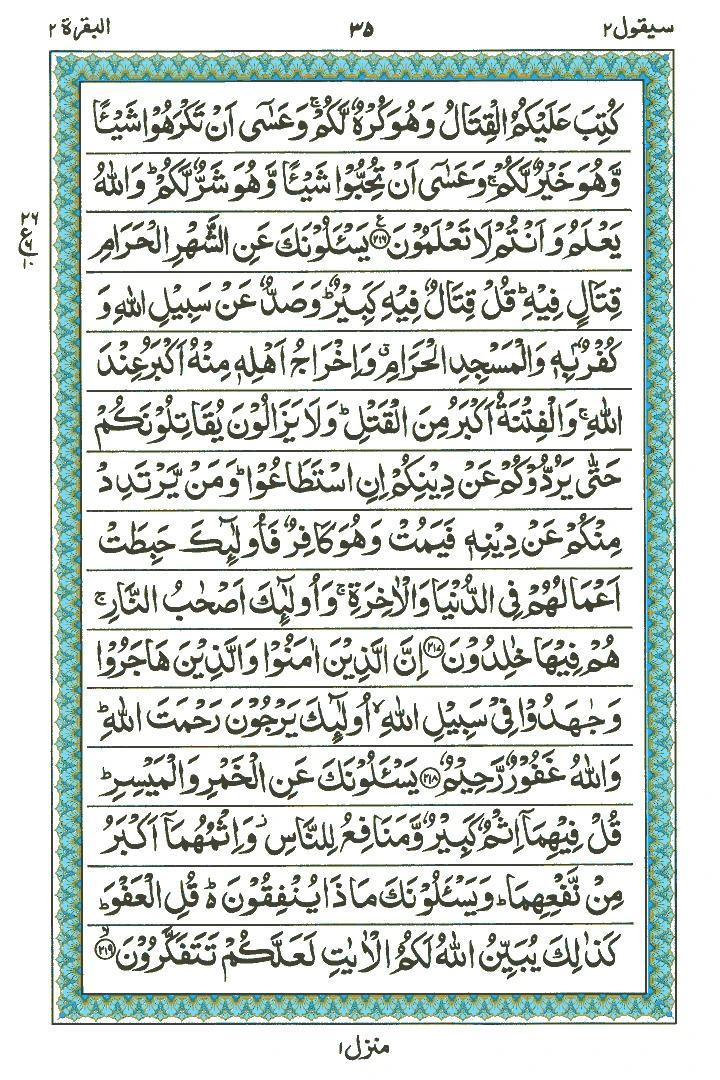 سيقول ٢ ٣٥ البقرة ٢
كُتِبَ عَلَيْكُمُ الْقِتَالُ وَهُوَ كُرْهٌ لَّكُمْ ۚ وَعَسٰٓى اَنْ تَكْرَهُوْا شَيْـًٔا
وَّهُوَ خَيْرٌ لَّكُمْ ۚ وَعَسٰٓى اَنْ تُحِبُّوْا شَيْـًٔا وَّهُوَ شَرٌّ لَّكُمْ ؕ وَاللّٰهُ
يَعْلَمُ وَاَنْتُمْ لَا تَعْلَمُوْنَ ﴿٢١٦﴾ ع يَسْـَٔلُوْنَكَ عَنِ الشَّهْرِ الْحَرَامِ
٢٦
ع
٦
١٠
قِتَالٍ فِيْهِ ؕ قُلْ قِتَالٌ فِيْهِ كَبِيْرٌ ؕ وَصَدٌّ عَنْ سَبِيْلِ اللّٰهِ وَ
كُفْرٌۢ بِهٖ وَالْمَسْجِدِ الْحَرَامِ ۗ وَاِخْرَاجُ اَهْلِهٖ مِنْهُ اَكْبَرُ عِنْدَ
اللّٰهِ ۚ وَالْفِتْنَةُ اَكْبَرُ مِنَ الْقَتْلِ ؕ وَلَا يَزَالُوْنَ يُقَاتِلُوْنَكُمْ
حَتّٰى يَرُدُّوْكُمْ عَنْ دِيْنِكُمْ اِنِ اسْتَطَاعُوْا ؕ وَمَنْ يَّرْتَدِدْ
مِنْكُمْ عَنْ دِيْنِهٖ فَيَمُتْ وَهُوَ كَافِرٌ فَاُولٰٓئِكَ حَبِطَتْ
اَعْمَالُهُمْ فِى الدُّنْيَا وَالْاٰخِرَةِ ۚ وَاُولٰٓئِكَ اَصْحٰبُ النَّارِ ۚ
هُمْ فِيْهَا خٰلِدُوْنَ ﴿٢١٧﴾ اِنَّ الَّذِيْنَ اٰمَنُوْا وَالَّذِيْنَ هَاجَرُوْا
وَجٰهَدُوْا فِىْ سَبِيْلِ اللّٰهِ ۙ اُولٰٓئِكَ يَرْجُوْنَ رَحْمَتَ اللّٰهِ ؕ
وَاللّٰهُ غَفُوْرٌ رَّحِيْمٌ ﴿٢١٨﴾ يَسْـَٔلُوْنَكَ عَنِ الْخَمْرِ وَالْمَيْسِرِ ؕ
قُلْ فِيْهِمَاۤ اِثْمٌ كَبِيْرٌ وَّمَنَافِعُ لِلنَّاسِ ۫ وَاِثْمُهُمَاۤ اَكْبَرُ
مِنْ نَّفْعِهِمَا ؕ وَيَسْـَٔلُوْنَكَ مَاذَا يُنْفِقُوْنَ ۬ؕ قُلِ الْعَفْوَ ؕ
كَذٰلِكَ يُبَيِّنُ اللّٰهُ لَكُمُ الْاٰيٰتِ لَعَلَّكُمْ تَتَفَكَّرُوْنَ ۙ﴿٢١٩﴾
منزل ١